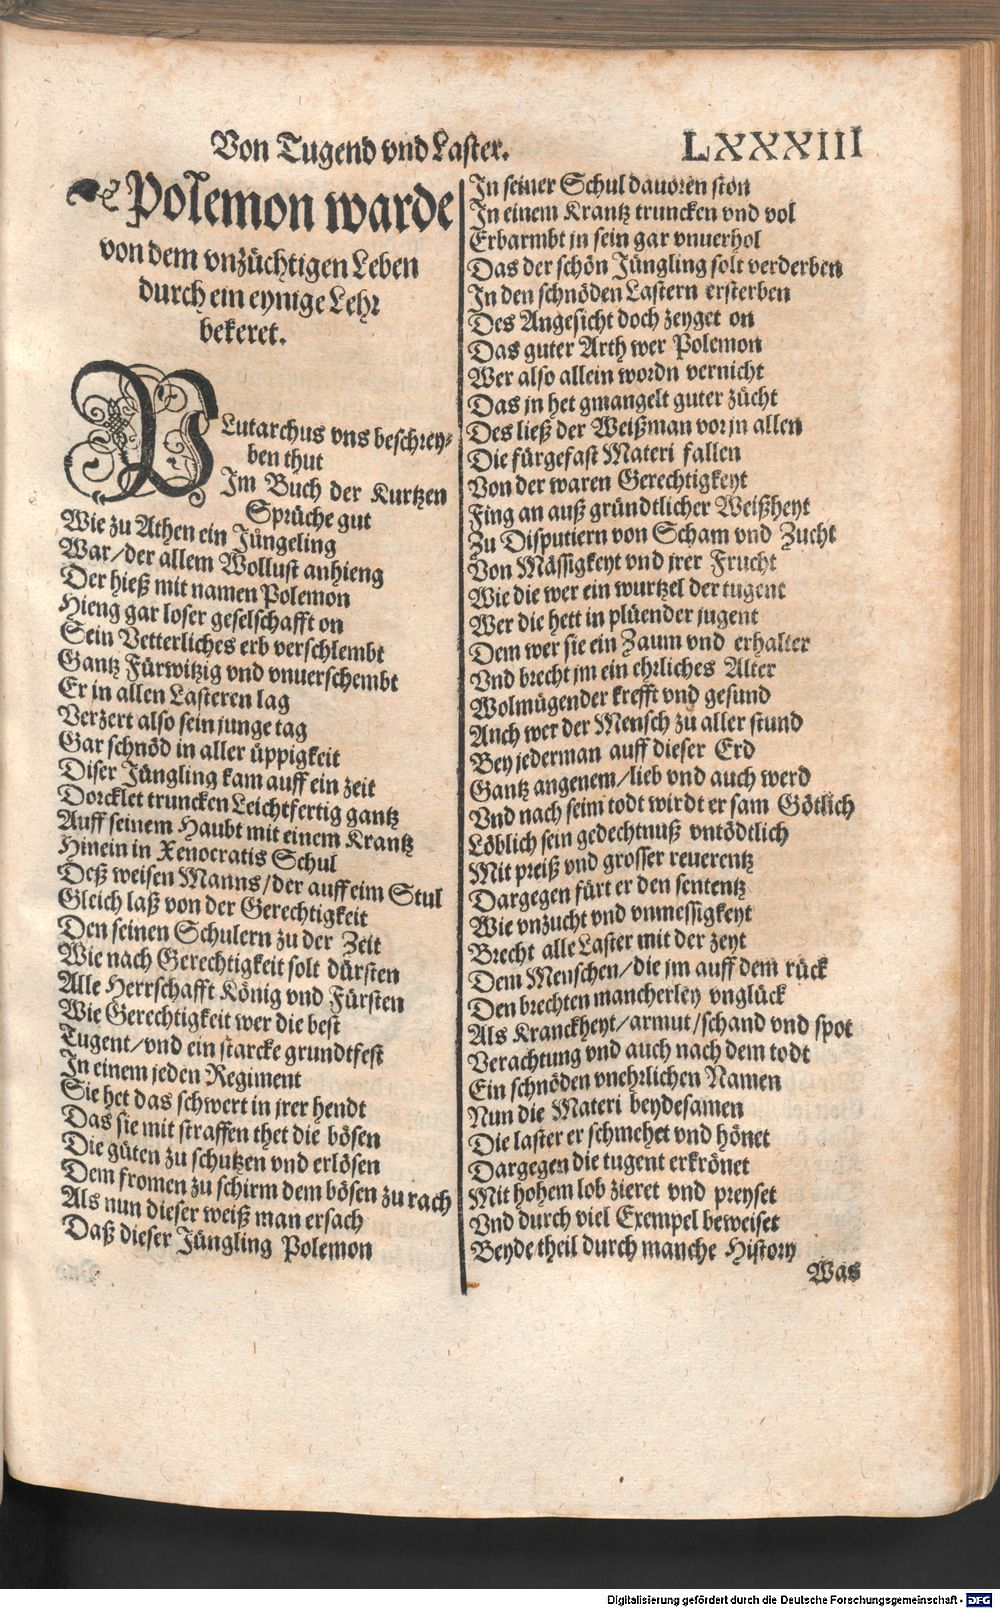 Von Tugend vnd Laster.
LXXXIII
Polemon warde
von dem vnzüchtigen Leben
durch ein eynige Lehr
bekeret.
PLutarchus vns beschrey-
ben thut
Im Buch der Kurtzen
Sprüche gut
Wie zu Athen ein Jüngeling
War/der allem Wollust anhieng
Der hieß mit namen Polemon
Hieng gar loser geselschafft on
Sein Vetterliches erb verschlembt
Gantz Fürwitzig vnd vnuerschembt
Er in allen Lasteren lag
Verzert also sein junge tag
Gar schnöd in aller üppigkeit
Diser Jüngling kam auff ein zeit
Dorcklet truncken Leichtfertig gantz
Auff seinem Haubt mit einem Krantz
Hinein in Xenocratis Schul
Deß weisen Manns/der auff eim Stul
Gleich laß von der Gerechtigkeit
Den seinen Schulern zu der Zeit
Wie nach Gerechtigkeit solt dürsten
Alle Herrschafft König vnd Fürsten
Wie Gerechtigkeit wer die best
Tugent/vnd ein starcke grundtfest
In einem jeden Regiment
Sie het das schwert in jrer hendt
Das sie mit straffen thet die bösen
Die güten zu schutzen vnd erlösen
Dem fromen zu schirm dem bösen zu rach
Als nun dieser weiß man ersach
Daß dieser Jüngling Polemon
In seiner Schul dauoren ston
In einem Krantz truncken vnd vol
Erbarmbt jn sein gar vnuerhol
Das der schön Jüngling solt verderben
In den schnöden Lastern ersterben
Des Angesicht doch zeyget on
Das guter Arth wer Polemon
Wer also allein wordn vernicht
Das jn het gmangelt guter zücht
Des ließ der Weißman vor jn allen
Die fürgefast Materi fallen
Von der waren Gerechtigkeyt
Fing an auß gründtlicher Weißheyt
Zu Disputiern von Scham vnd Zucht
Von Mässigkeyt vnd jrer Frucht
Wie die wer ein wurtzel der tugent
Wer die hett in plüender jugent
Dem wer sie ein Zaum vnd erhalter
Vnd brecht jm ein ehrliches Alter
Wolmügender krefft vnd gesund
Auch wer der Mensch zu aller stund
Bey jederman auff dieser Erd
Gantz angenem/lieb vnd auch werd
Vnd nach seim todt wirdt er sam Götlich
Löblich sein gedechtnuß vntödtlich
Mit preiß vnd grosser reuerentz
Dargegen fürt er den sententz
Wie vnzucht vnd vnmessigkeyt
Brecht alle Laster mit der zeyt
Dem Menschen/die jm auff dem rück
Den brechten mancherley vnglück
Als Kranckheyt/armut/schand vnd spot
Verachtung vnd auch nach dem todt
Ein schnöden vnehrlichen Namen
Nun die Materi beydesamen
Die laster er schmehet vnd hönet
Dargegen die tugent erkrönet
Mit hohem lob zieret vnd preyset
Vnd durch viel Exempel beweiset
Beyde theil durch manche History
Was
Digitalisierung gefördert durch die Deutsche Forschungsgemeinschaft - DFG